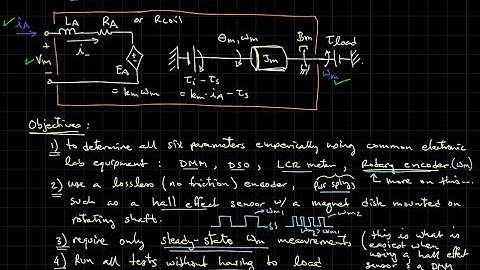 iA
LA RA or Rcoil
+
Vm
-
ia
EA
= km ωm
θm, ωm
Jm
Bm
τload
ωm
τi - τs
= km · iA - τs
Objectives :
1) to determine all six parameters emperically using common electronic
lab equipment : DMM, DSO, LCR meter, Rotary encoder. (ωm)
more on this...
2) use a lossless (no friction) encoder, (for spdngs)
such as a hall effect sensor w/ a magnet disk mounted on
rotating shaft.
ωm1
ωm2
ωm2 > ωm1
3) require only steady-state ωm measurements (this is what is
easiest when
using a hall effect
4) Run all tests without having to load
sensor & a DMM